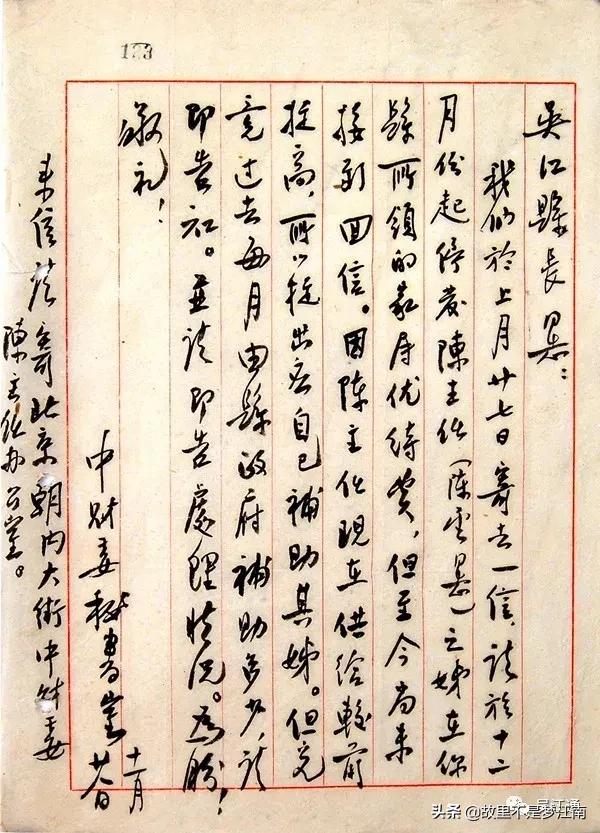 133
吴江縣長暴：
我们於上月廿七日寄去一信，请於十二
月份起停发陳主任（陈雲暴）之姊在你
縣所領的家屬优待费，但至今尚未
接到回信。因陈主任现在供给較前
提高，所以提出应自己補助其姊。但究
竟过去每月由縣政府補助多少，请
即告知。並请即告處理情况。為盼！
敬礼！
中财委秘書室
十二月
廿日
来信请寄北京朝内大街中财委
陳主任办公室。
吴江通
头条 @故里不是梦江南